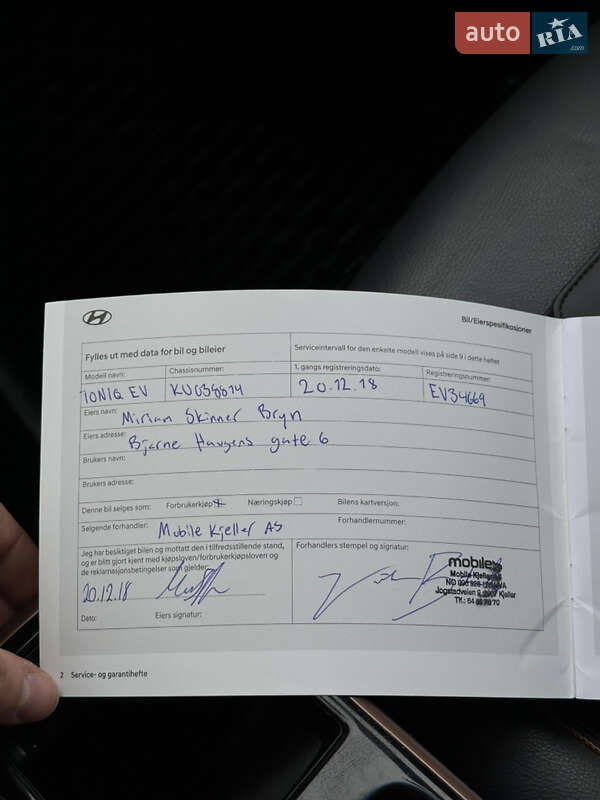 auto RIA.com
Bil/Eierspesifikasjoner
Fylles ut med data for bil og bileier
Serviceintervall for den enkelte modell vises på side 9 i dette heftet
Modell navn: Chassisnummer: 1. gangs registreringsdato: Registreringsnummer:
IONIQ EV 20.12.18 EV34669
Eiers navn: Miriam Skinner Bryn
Eiers adresse: Bjarne Haugens gate 6
Brukers navn:
Brukers adresse:
Denne bil selges som: Forbrukerkjøp Næringskjøp Bilens kartversjon:
Selgende forhandler: Mobile Kjeller AS Forhandlernummer:
Jeg har besiktiget bilen og mottatt den i tilfredsstillende stand,
og er blitt gjort kjent med kjøpsloven/forbrukerkjøpsloven og
de reklamasjonsbetingelser som gjelder:
20.12.18
Dato: Eiers signatur:
Forhandlers stempel og signatur:
mobile
Mobile Kjeller
Jogstadveien 2007 Kjeller
2 Service- og garantihefte